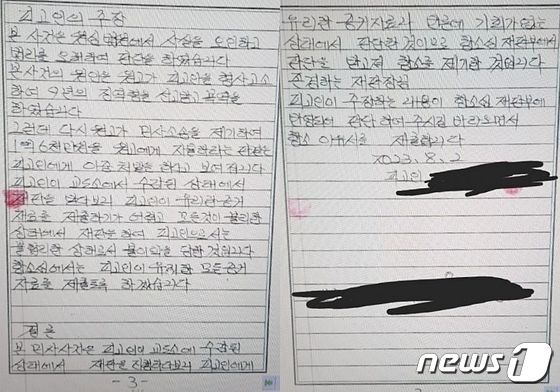 피고인의 주장
본 사건은 원심 법원에서 사실을 오인하고
법리를 오해하여 판단을 하였습니다
본사건의 원인은 원고가 피고인을 형사고소
하여 9년의 징역형을 선고받고 복역을
하였습니다
그런데 다시 원고가 민사소송을 제기하여
1억6천만원을 원고에게 지불하라는 판결은
피고인에게 이중 처벌을 하라고 보여집니다
피고인이 교도소에서 수감된 상태에서
재판을 받다보니 피고인이 유리한 증거
자료를 제출하기가 어렵고 모든것이 불리한
상태에서 재판을 하여 피고인으로서는
불합리한 상태로서 불이익을 당한 것입니다
항소심에서는 피고인이 유리한 모든 증거
자료를 제출토록 하겠습니다
결론
본 민사사건은 피고인이 교도소에 수감된
상태에서 재판을 진행하다보니 피고인에게
- 3 -
유리한 증거자료나 변론에 기회가 없는
상태에서 판단한 것이므로 항소심 재판부에서
판단을 받고저 항소를 제기한 것입니다
존경하는 재판장님
피고인이 주장하는 내용이 항소심 재판부에
반영되어 판단하여 주시길 바라오면서
항소 이유서를 제출합니다
2023. 8. 2
피고인
news1